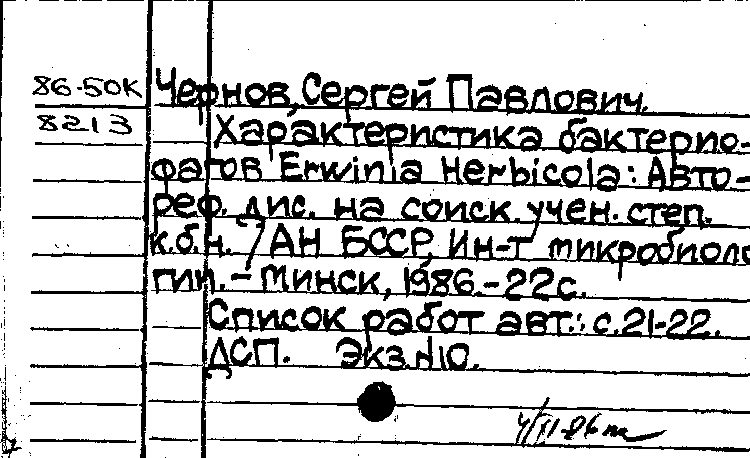 86-50к Чернов, Сергей Павлович.
8213 Характеристика бактерио-
фагов Erwinia Herbicola: Авто-
реф. дис. на соиск. учен. степ.
к.б.н. / АН БССР, Ин-т микробиоло
гии. - Минск, 1986. - 22 с.
Список работ авт.: с. 21-22.
ДСП. Экз. №10.